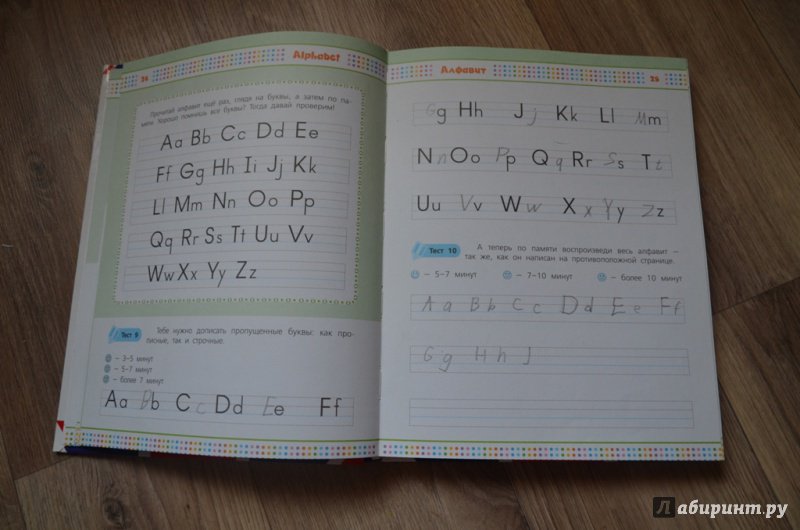 24 Alphabet
Прочитай алфавит ещё раз, глядя на буквы, а затем по па-
мяти. Хорошо помнишь все буквы? Тогда давай проверим!
Aa Bb Cc Dd Ee
Ff Gg Hh Ii Jj Kk
Ll Mm Nn Oo Pp
Qq Rr Ss Tt Uu Vv
Ww Xx Yy Zz
Тест 9 Тебе нужно дописать пропущенные буквы: как про-
писные, так и строчные.
– 3–5 минут
– 5–7 минут
– более 7 минут
Aa Bb Cc Dd Ee Ff
Алфавит 25
Gg Hh J j Kk Ll Mm
Nn Oo Pp Qq Rr Ss Tt
Uu Vv Ww Xx Yy Zz
Тест 10 А теперь по памяти воспроизведи весь алфавит –
так же, как он написан на противоположной странице.
– 5–7 минут – 7–10 минут – более 10 минут
A a B b C c D d E e F f
G g H h J
Лабиринт.ру